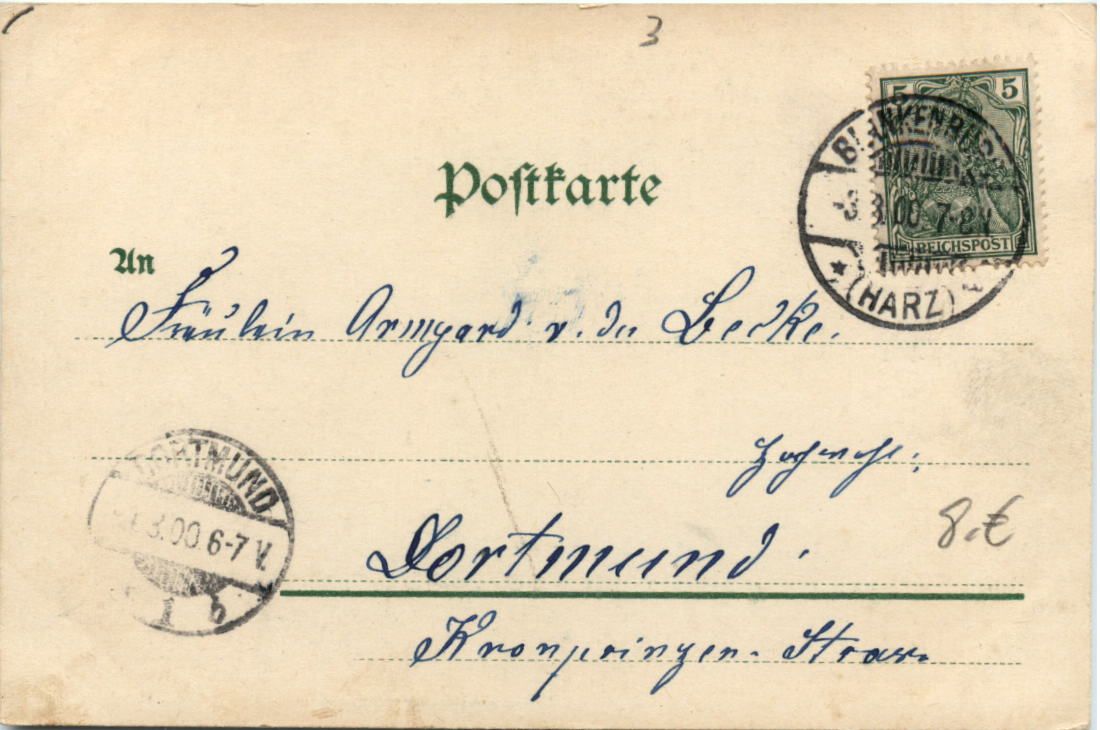 3
5 5
BLANKENBURG
3.00 7-8V
REICHSPOST
(HARZ)
Postkarte
An
Fräulein Armgard v. der Becke.
DORTMUND
3.00 6-7 V.
1 b
Hochwohl:
8.€
Dortmund.
Kronprinzen-Strasse